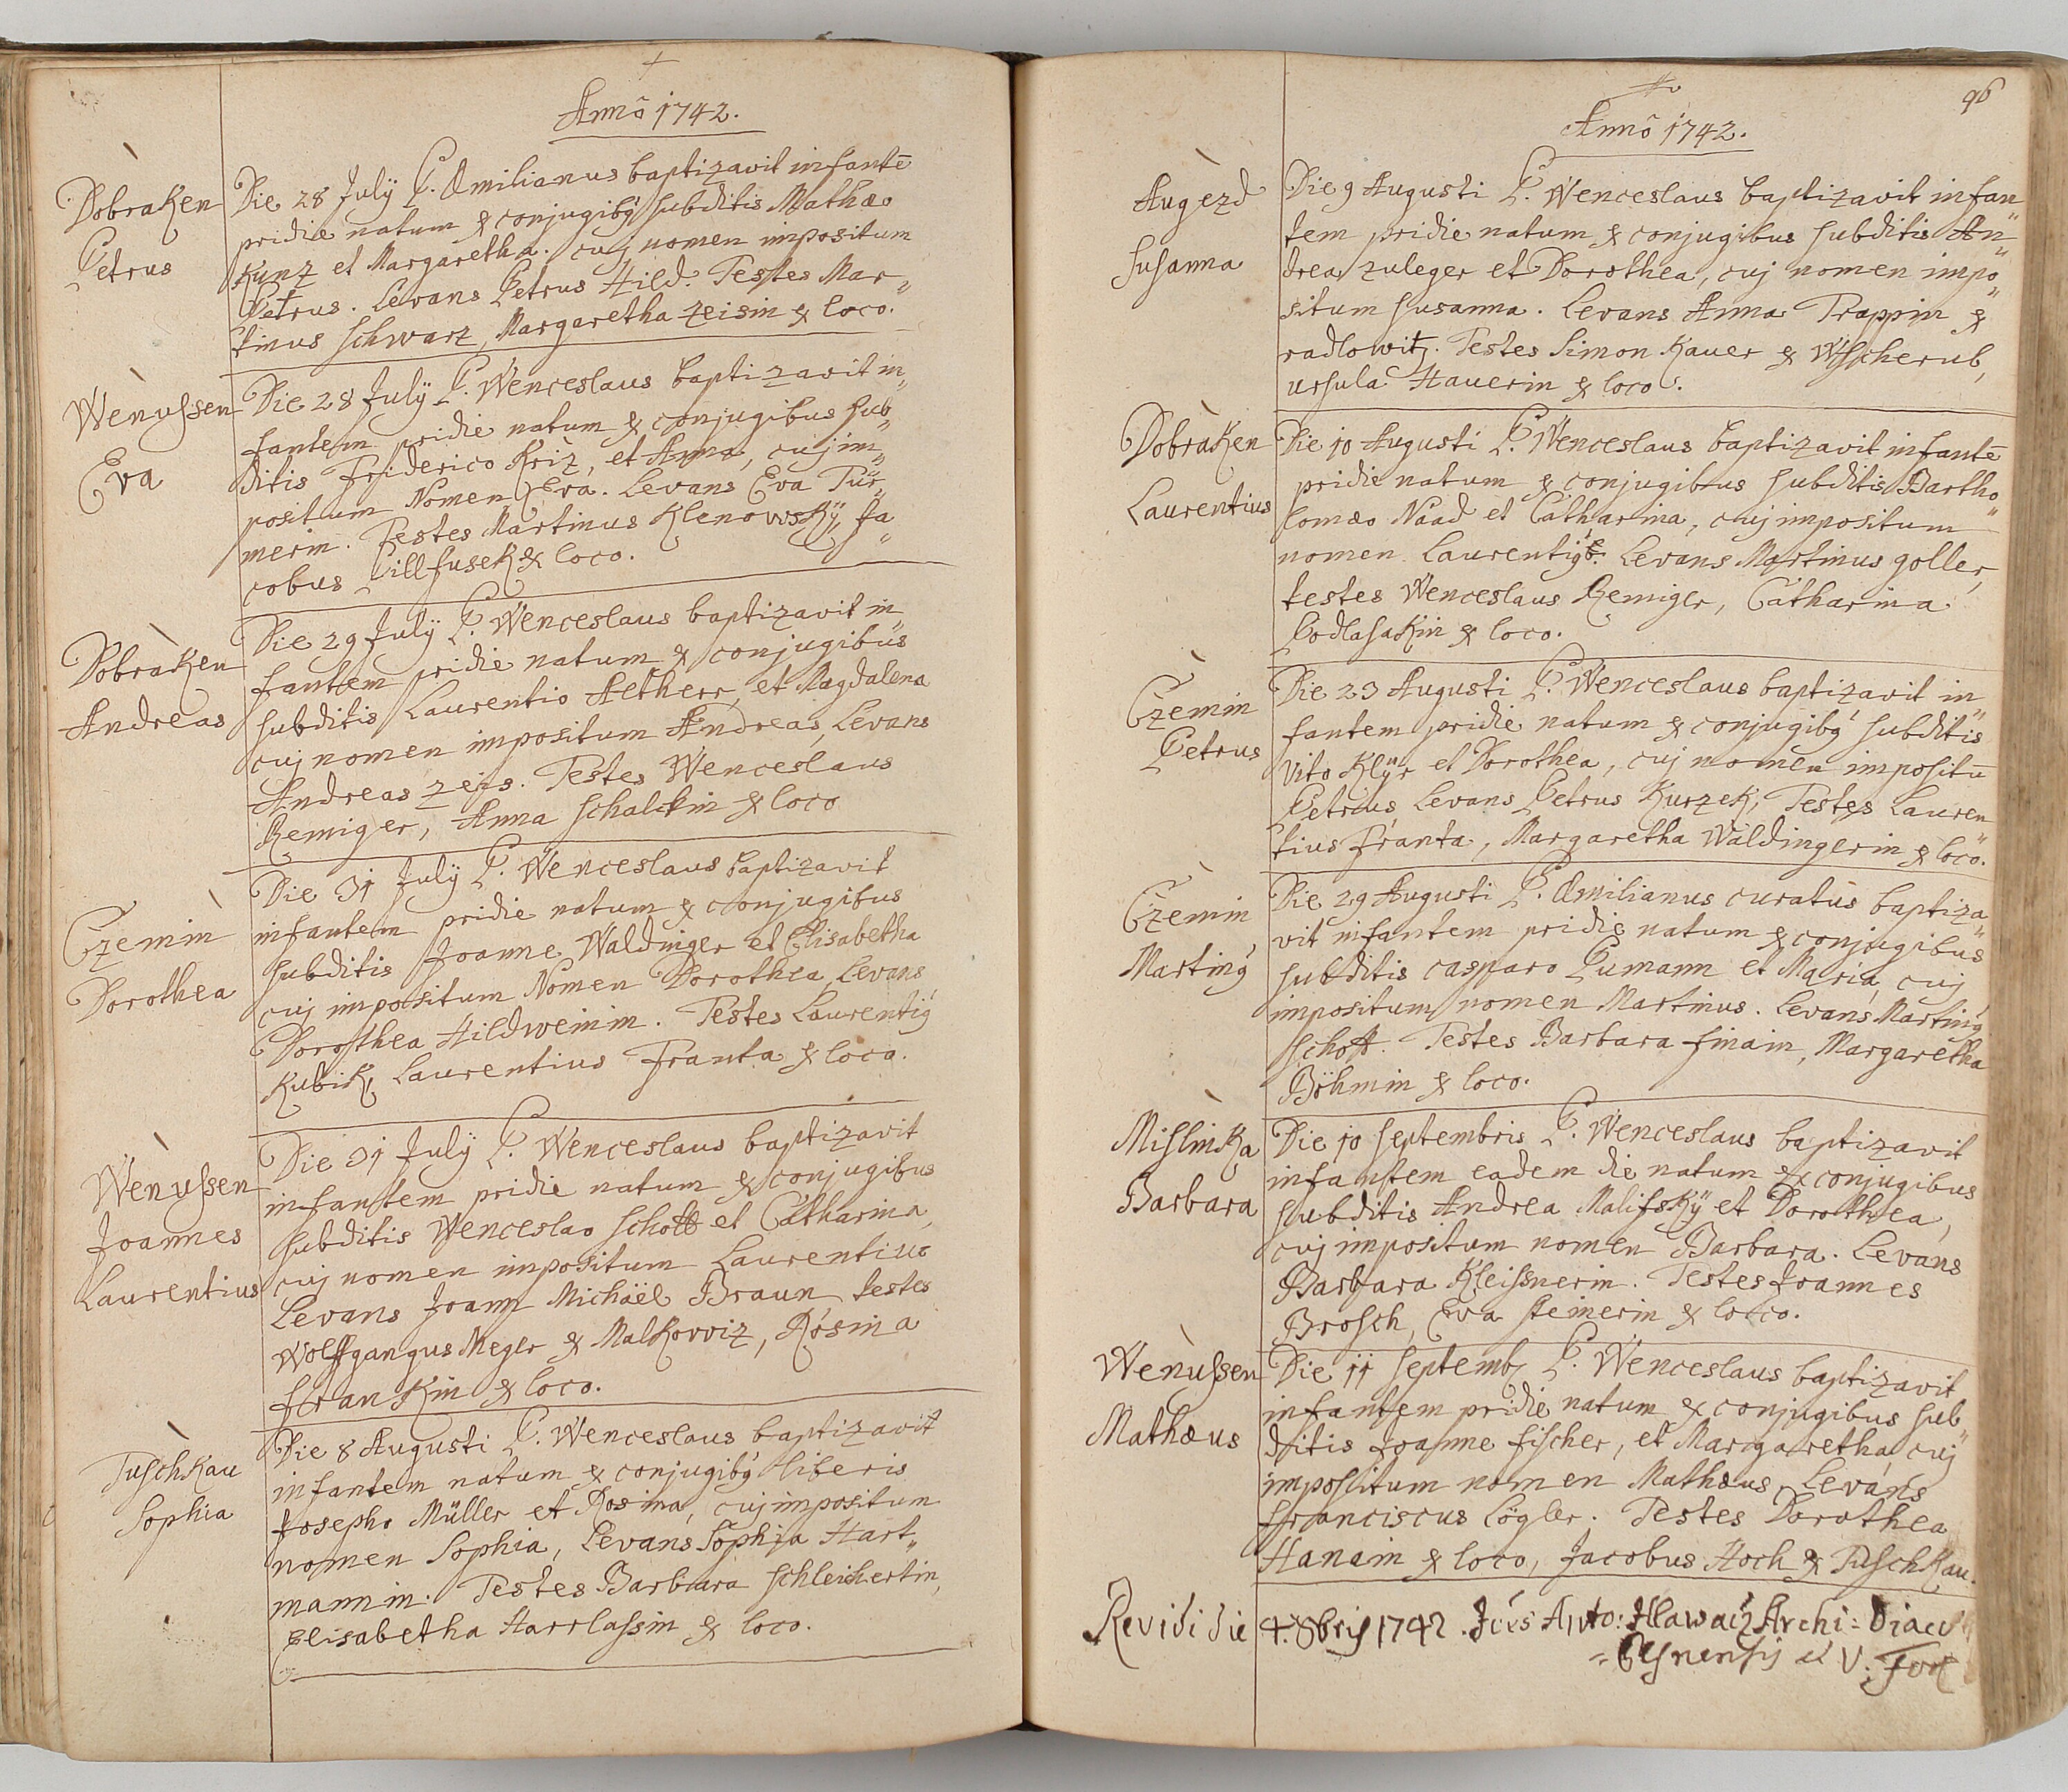 Anno 1742.
Dobraken
Petrus
Die 28 Julÿ P. Æmilianus baptizavit infantē
pridie natum ex conjugibq subditis Mathæo
Kunz et Margaretha. cuj nomen impositum
Petrus. Levans Petrus Hild. Testes Mar„
tinus Schwarz, Margaretha Zeisin ex loco.
Wenussen
Eva
Die 28 Julÿ P. Wenceslaus baptizavit in„
fantem pridie natum ex conjugibus sub„
ditis Friderico Kriz, et Anna, cuj im„
positum Nomen Eva. Levans Eva Tür„
merin. Testes Martinus Klenowskÿ, Ja„
cobus Pillfusek ex loco.
Dobraken
Andreas
Die 29 Julÿ P. Wenceslaus baptizavit in„
fantem pridie natum ex conjugibus
subditis Laurentio Aetherr, et Magdalena
cuj nomen impositum Andreas, Levans
Andreas Zeis. Testes Wenceslaus
Remiger, Anna Schalckin ex loco
Czemin
Dorothea
Die 31 Julÿ P. Wenceslaus baptizavit
infantem pridie natum ex conjugibus
subditis Joanne Waldinger et Elisabetha
cuj impositum Nomen Dorothea, Levans
Dorothea Hildweinin. Testes Laurentiq
Kubik, Laurentius Franta ex loco.
Wenussen
Joannes
Laurentius
Die 31 Julÿ P. Wenceslaus baptizavit
infantem pridie natum ex conjugibus
subditis Wenceslao Schott et Catharina,
cuj nomen impositum Laurentius
Levans Joann Michäel Braun testes
Wolffgangus Meger ex Malkowiz, Rosina
Frankin ex loco.
Tuschkau
Sophia
Die 8 Augusti P. Wenceslaus baptizavit
infantem natum ex conjugibq liberis
Josepho Müller et Rosina, cuj impositum
nomen Sophia, Levans Sophia Hart„
mannin. Testes Barbara Schleichertin,
Elisabetha Harrlassin ex loco.
96
Anno 1742.
Augezd
Susanna
Die 9 Augusti P. Wenceslaus baptizavit infan„
tem pridie natum ex conjugibus subditis An„
drea Zuleger et Dorothea, cuj nomen impo„
situm Susanna. Levans Anna Trappin ex
radlowitz. Testes Simon Kauer ex Wscherub,
ursula Hauerin ex loco.
Dobraken
Laurentius
Die 10 Augusti P. Wenceslaus baptizavit infantē
pridie natum ex conjugibus subditis Bartho„
lomæo Naad et Catharina, cuj impositum
nomen Laurentiq. Levans Martinus goller,
testes Wenceslaus Remiger, Catharina
Podlasakin ex loco.
Czemin
Petrus
Die 23 Augusti P. Wenceslaus baptizavit in„
fantem pridie natum ex conjugibq subditis
Vito Klÿr et Dorothea, cuj nomen impositū
Petrus, Levans Petrus Kurzek, Testes Lauren„
tius Franta, Margaretha Waldingerin ex loco.
Czemin
Martinq
Die 29 Augusti P. Æmilianus curatus baptiza„
vit infantem pridie natum ex conjugibus
subditis casparo Pumann et Maria, cuj
impositum nomen Martinus. Levans Martinq
Schott. Testes Barbara Finain, Margaretha
Böhmin ex loco.
Mislinka
Barbara
Die 10 Septembris P. Wenceslaus baptizavit
infantem eadem die natum ex conjugibus
subditis Andrea Malifskÿ et Dorothea,
cuj impositum nomen Barbara. Levans
Barbara Kleissnerin. Testes Joannes
Brosch, Eva Steinerin ex loco.
Wenussen
Mathæus
Die 11 Septemb P. Wenceslaus baptizavit
infantem pridie natum ex conjugibus sub„
ditis Joanne Fischer, et Margaretha, cuj
impositum nomen Mathæus, Levans
Franciscus Lögler. Testes Dorothea
Hanain ex loco, Jacobus Hoch ex Tuschkau.
Revidi die 4. 8bris 1742. Anto: Hlawacz Archi: Diaco
Plsnensis et V: For